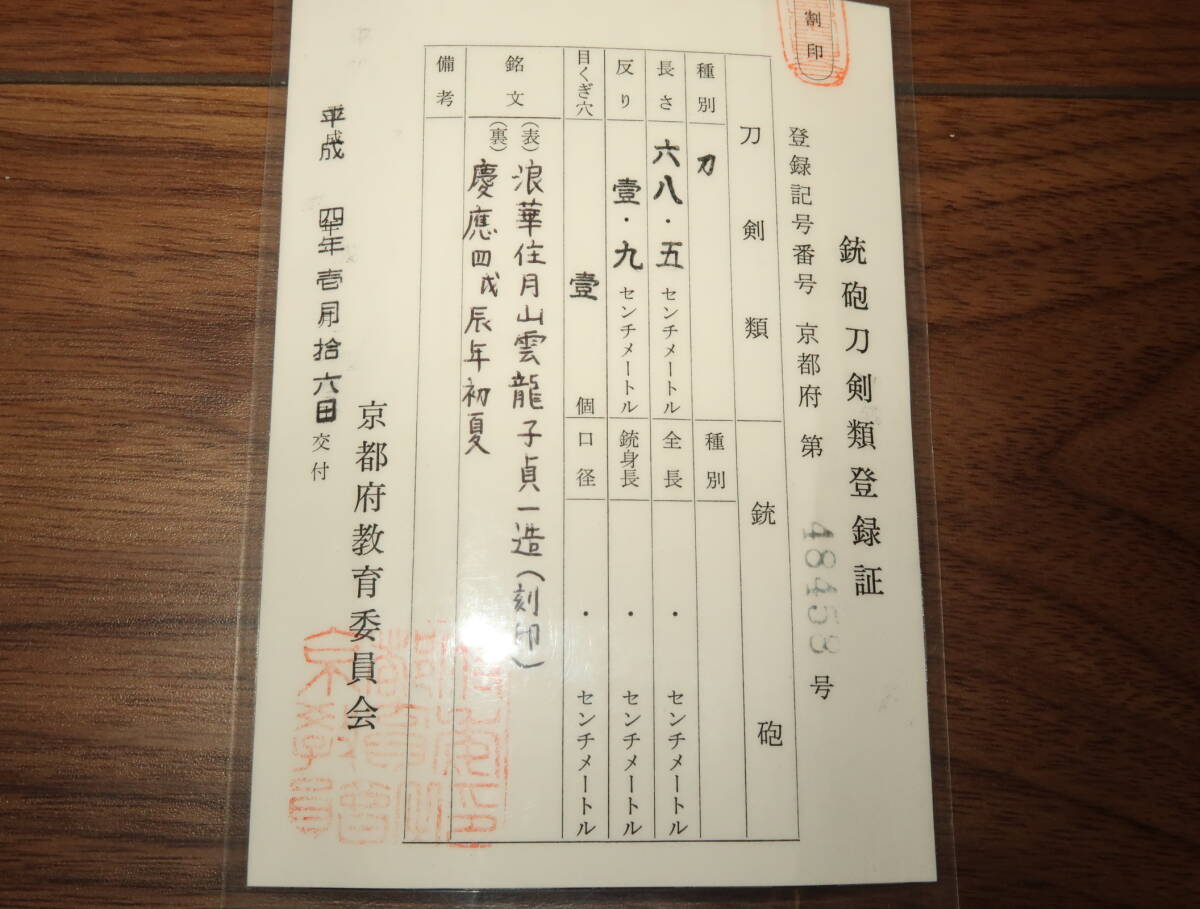 割印
銃砲刀剣類登録証
登録記号番号 京都府 第 48458 号
刀剣類
銃砲
種別 刀
種別
長さ 六八・五 センチメートル
全長 ・ センチメートル
反り 壹・九 センチメートル
銃身長 ・ センチメートル
目くぎ穴 壹 個
口径 ・ センチメートル
銘文
(表) 浪華住月山雲龍子貞一造(刻印)
(裏) 慶應四戊辰年初夏
備考
平成 四年壱月拾六日交付
京都府教育委員会